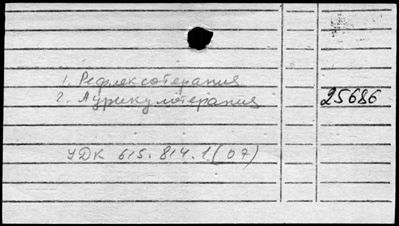 1. Рефлексотерапия
2. Аурикулотерапия
25686
УДК 615.814.1(07)